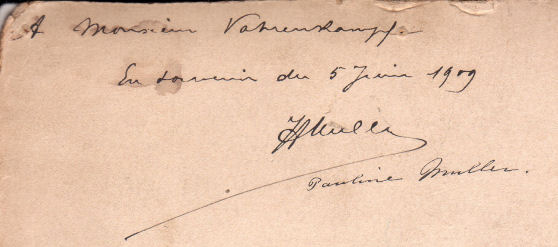 A Monsieur Vahrenkampf.
En souvenir du 5 Juin 1909
H Muller
Pauline Muller.